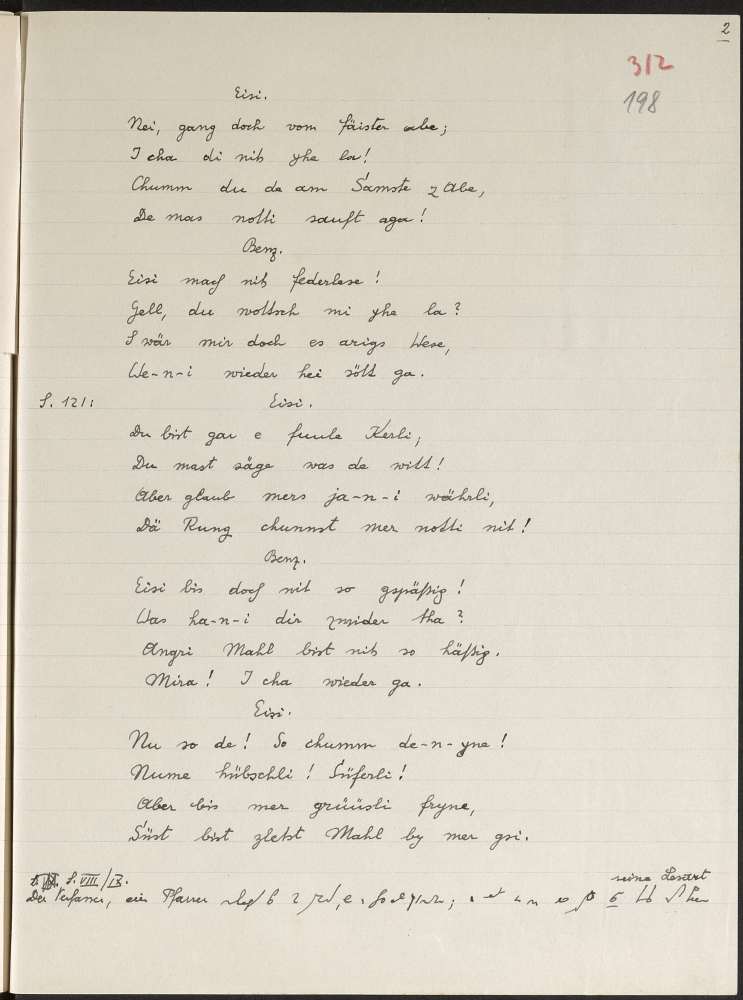 2
312
198
Eisi.
Nei, gang doch vom fäister abe;
I cha di nit yhe la!
Chumm du de am Samste z Abe,
De mas notti sauft aga!
Benz.
Eisi mach nit federlese!
Gell, du wottsch mi yhe la?
S wär mir doch es arigs Wese,
We-n-i wieder hei sött ga.
S. 121:
Eisi.
Du bist gar e fuule Kerli,
Du mast säge was de witt!
Aber glaub mers ja-n-i währli,
Dä Rung chunnst mer notti nit!
Benz.
Eisi bis doch nit so gspäßig!
Was ha-n-i dir zwider tha?
Angri Mahl bist nit so häßig.
Mira! I cha wieder ga.
Eisi.
Nu so de! So chumm de-n-yne!
Nume hübschli! Süferli!
Aber bis mer grüüsli fryne,
Süst bist zletst Mahl by mer gsi.
S. VIII/IX.
seine Lesart
Der Verfasser, ein Pfarrer